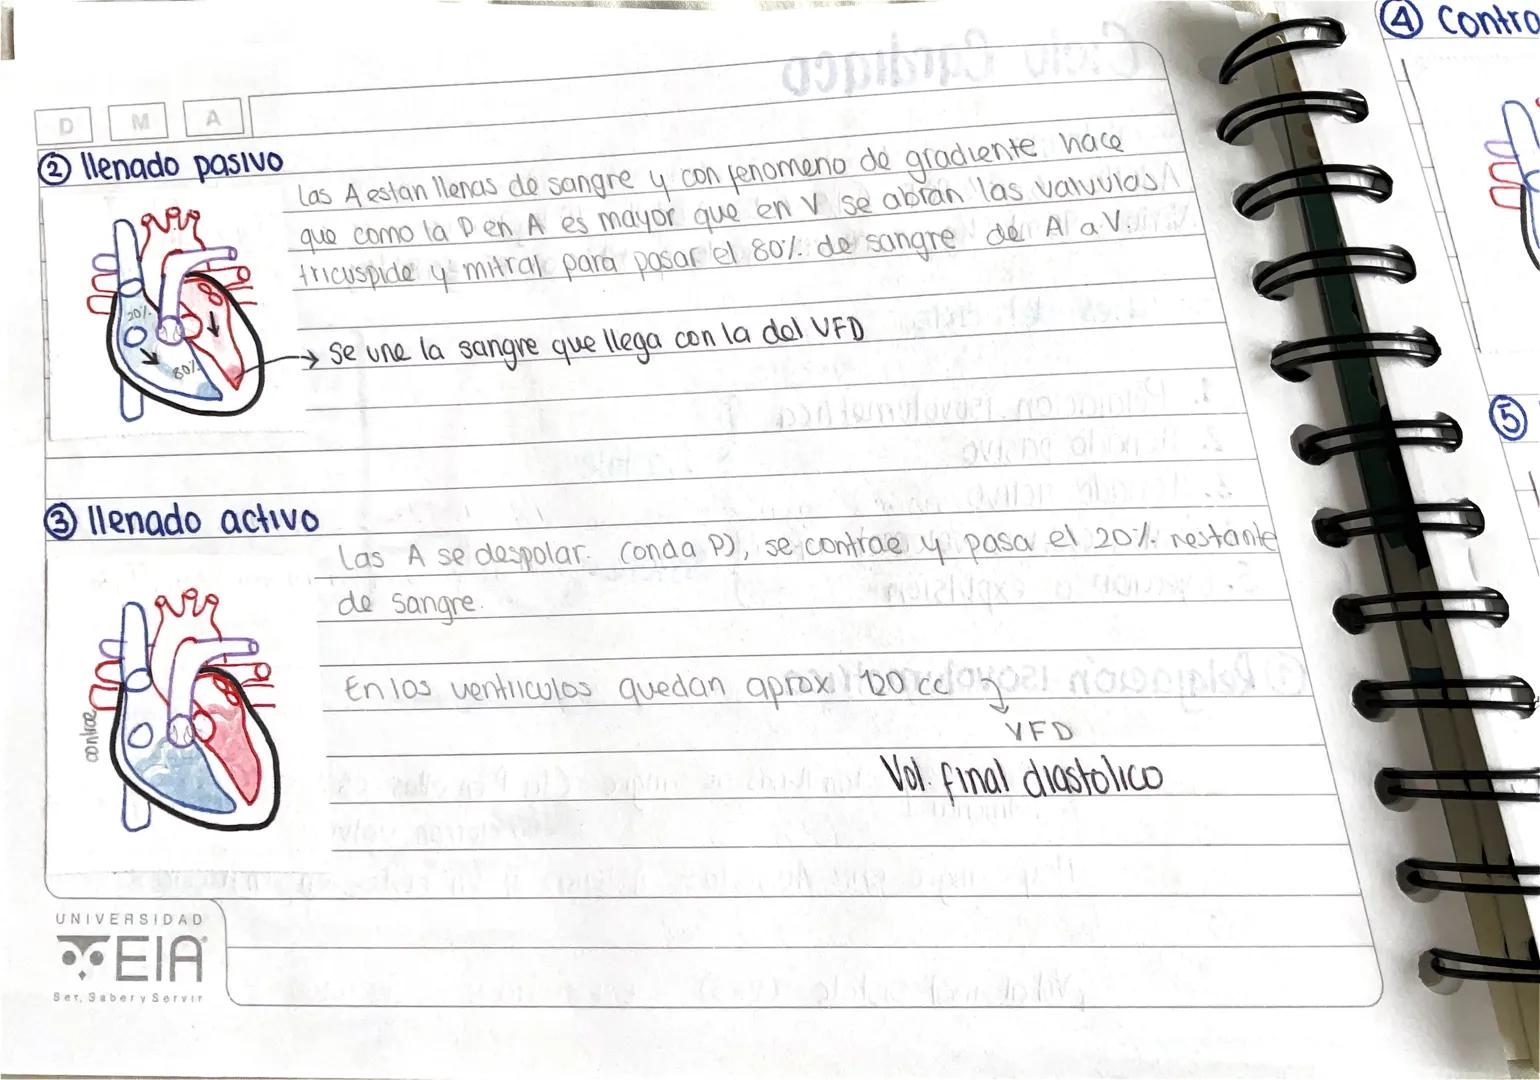 D M A
② llenado pasivo
las A estan llenas de sangre y con fenomeno de gradiente hace
que como la P en A es mayor que en V se abran las valvulas
tricuspide y mitral para pasar el 80% de sangre de A a V.
20%
80%
→ Se une la sangre que llega con la del VFD
③ llenado activo
Las A se despolar. (onda P), se contrae y pasa el 20% restante
de sangre.
contrae
En los ventriculos quedan aprox 120 cc
VFD
Vol. final diastolico
UNIVERSIDAD
EIA
Ser, Saber y Servir
④ Contra
⑤